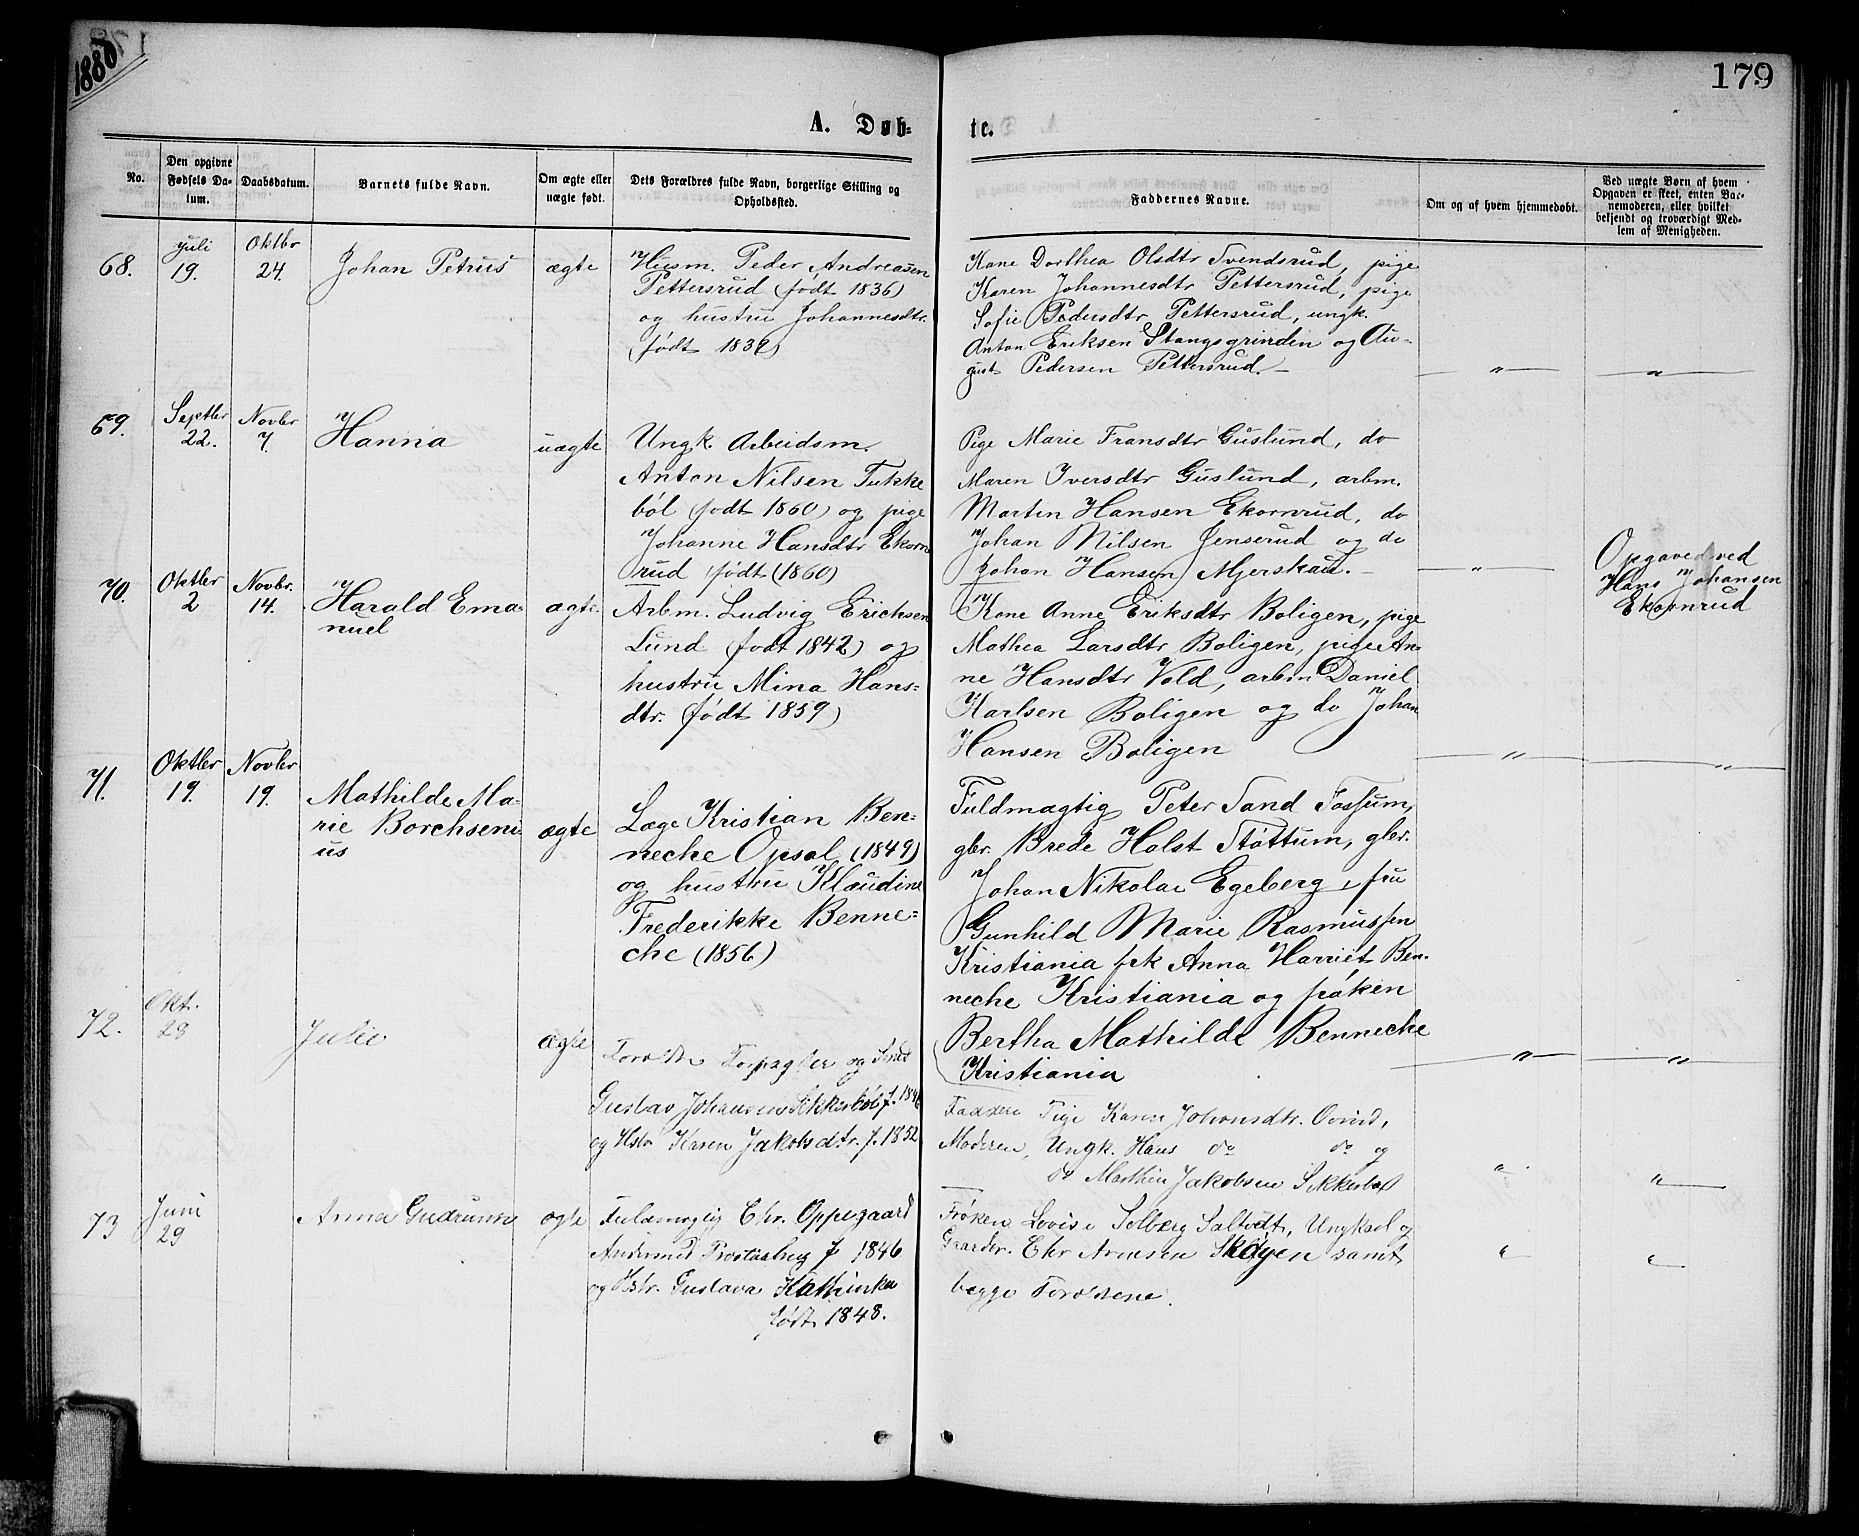 1880
179
A. Døb-
te.
No.
Den opgivne Fødsels Da-
tum.
Daabsdatum.
Barnets fulde Navn.
Om ægte eller
uægte født.
Dets Forældres fulde Navn, borgerlige Stilling og
Opholdssted.
Faddernes Navne.
Om og af hvem hjemmedøbt.
Ved uægte Børn af hvem
Opgaven er skeet, enten Bar-
nemoderen, eller hvilket
bekjendt og troværdigt Med-
lem af Menigheden.
68.
Juli
19.
Oktbr
24.
Johan Petrus
ægte
Husm. Peder Andreasen
Pettersrud (født 1836)
og hustru Johannesdtr.
(født 1832)
Kone Dorthea Olsdtr Svendsrud, pige
Karen Johannesdtr Pettersrud, pige
Sofie Pedersdtr Pettersrud, ungk.
Anton Eriksen Stangsgrinden og Au-
gust Pedersen Pettersrud. —
— " —
— " —
69.
Septbr
22.
Novbr
7.
Hanna
uægte
Ungk. Arbeidsm.
Anton Nilsen Tukke
bøl (født 1860) og pige
Johanne Hansdtr Ekorn
rud født (1860)
Pige Marie Fransdtr Guslund, do
Maren Iversdtr Guslund, arbm.
Martin Hansen Ekornrud, do
Johan Nilsen Jenserud og do
Johan Hansen Mjerskau. —
— " —
Opgaved ved
Hans Johansen
Ekornrud
70.
Oktbr
2
Novbr.
14.
Harald Ema-
nuel
ægte
Arbm. Ludvig Erichsen
Lund (født 1842) og
hustru Mina Hans-
dtr. (født 1859)
Kone Anne Eriksdtr Boligen, pige
Mathea Larsdtr Boligen, pige An-
ne Hansdtr Vold, arbm Daniel
Karlsen Boligen og do Johan
Hansen Boligen
— " —
— " —
71.
Oktbr
19.
Novbr
19.
Mathilde Ma-
rie Borchseni
us
ægte
Læge Kristian Ben-
neche Opsal (1849)
og hustru Klaudine
Frederikke Benne-
che (1856)
Fuldmægtig Peter Sand Fossum,
gbr. Brede Holst Støttum, gbr.
Johan Nikolai Egeberg, fru
Gunhild Marie Rasmussen
Kristiania frk Anna Harriet Ben-
neche Kristiania og frøken
Bertha Mathilde Benneche
Kristiania
— " —
— " —
72.
Okt.
28
Julie
ægte
Foræld. Forpagter og Smed
Gustav Johansen Sikkerbøl f. 1846
og Hstr Karen Jakobsdtr. f. 1852
Faddere Pige Karen Johansdtr.
Moderen, Ungk. Hans do do og
do Mathin Jakobsen Sikkerbøl
"
— " —
73
Juni
29
Anna Gudrun
ægte
Fuldmægtig Chr. Oppegaard
f 1846
og Hstr. Gustava Kathinka
født 1848.
Frøken Lovise Solberg Saltvedt, Ungkarl og
Gaardbr. Chr Arnesen Skøyen samt
begge Forældrene.
"
"